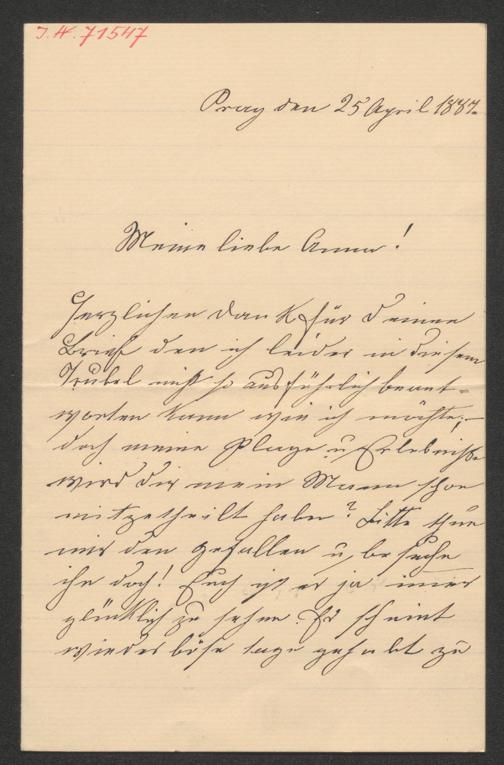 J.N. 71547
Prag den 25 April 1887.
Meine liebe Anna!
Herzlichen Dank für Deinen
Brief den ich leider in diesem
Trubel nicht so ausführlich beant-
worten kann wie ich möchte,
doch meine Plage u Erlebnisse
wird dir mein Mann schon
mitgetheilt haben? Bitte thue
mir den Gefallen u, besuche
ihn doch! Euch ist er ja immer
glücklich zu sehen. Er scheint
wieder böse tage gehabt zu